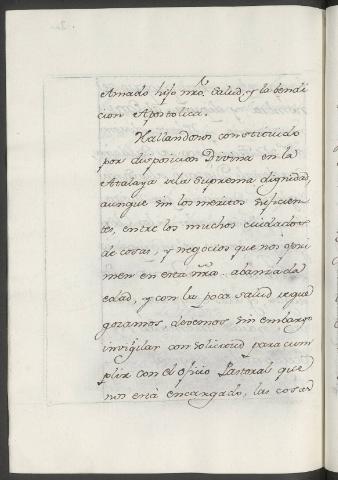 Amado hijo nro. Salud, y la bendi
cion Apostolica.
Hallandonos constituido
por disposicion Divina en la
Atalaya de la Suprema dignidad,
aunque sin los meritos suficien-
tes, entre los muchos cuidados
de cosas, y negocios que nos opri
men en esta nra. abanzada
edad, y con la poca salud que
gozamos, devemos sin embargo
invigilar con solicitud para cum
plir con el oficio Pastoral que
nos está encargado, las cosas